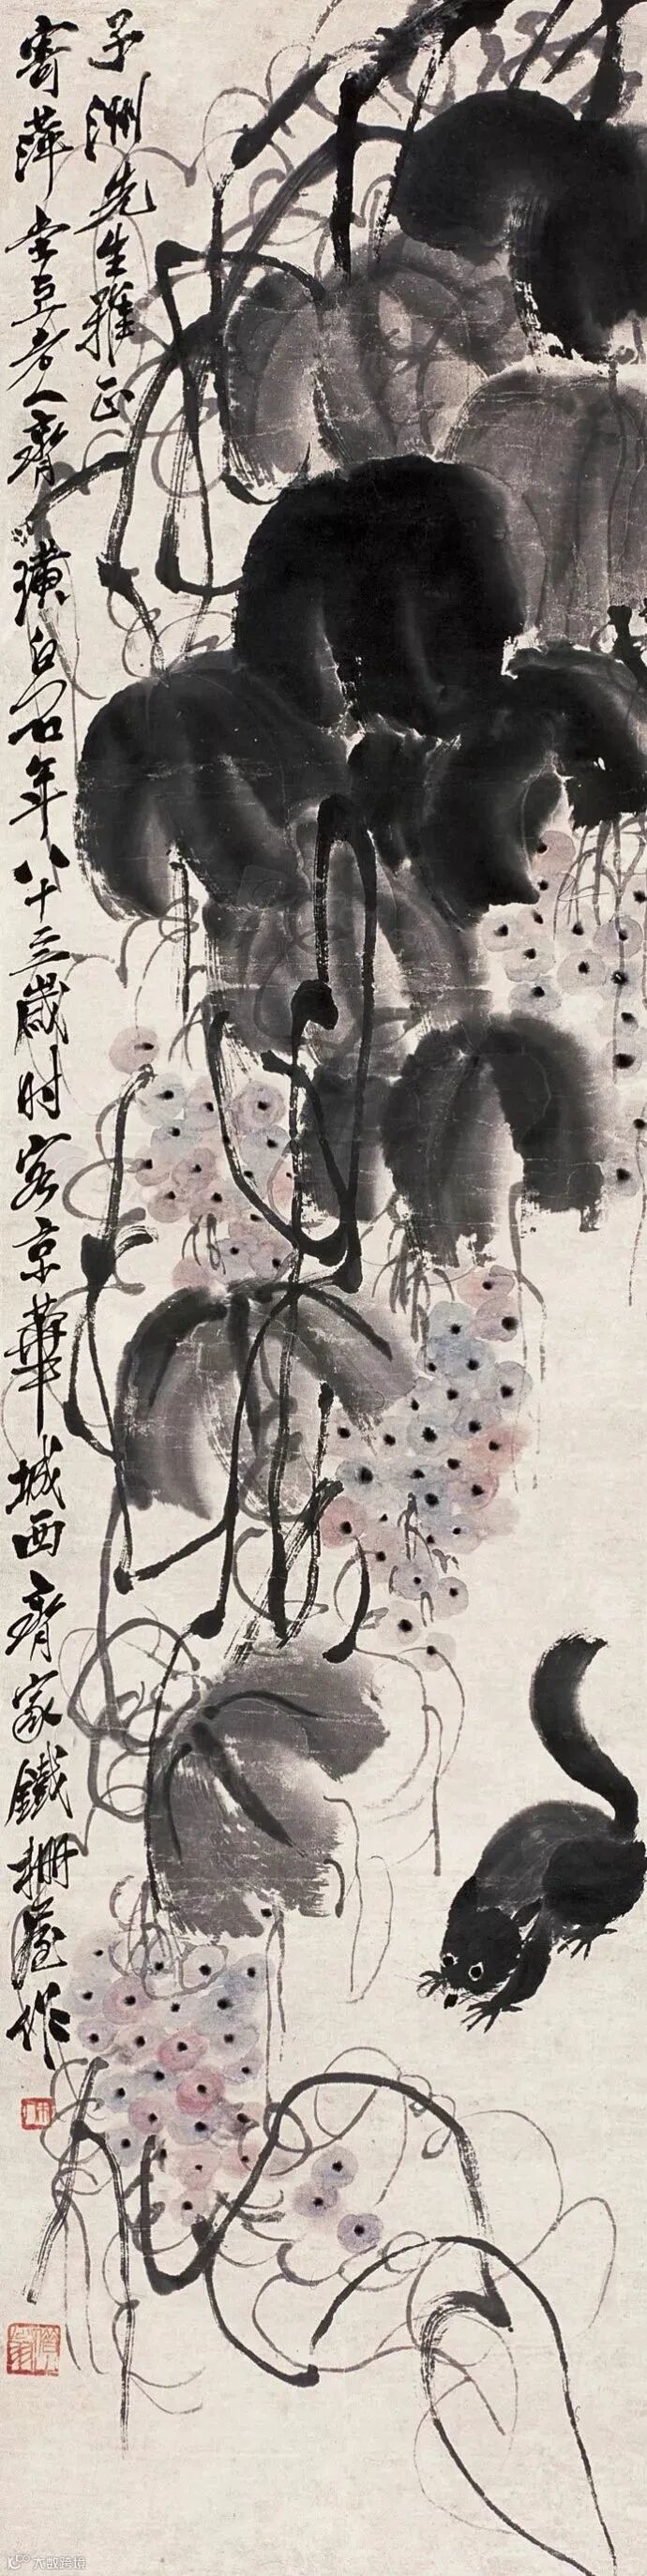 子洲先生雅正
寄萍堂上老人齊璜白石年八十三歲时客京華城西齊家鐵柵屋作
大數跨境